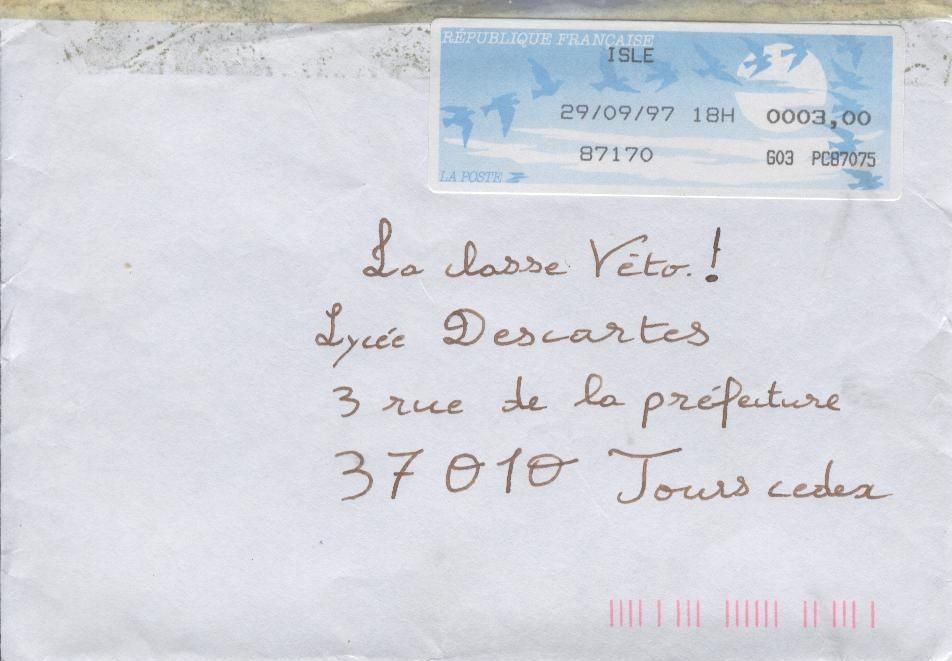 RÉPUBLIQUE FRANÇAISE
ISLE
29/09/97 18H 0003,00
87170 G03 PC87075
LA POSTE
La classe Véto.!
Lycée Descartes
3 rue de la préfecture
37010 Tours cedex